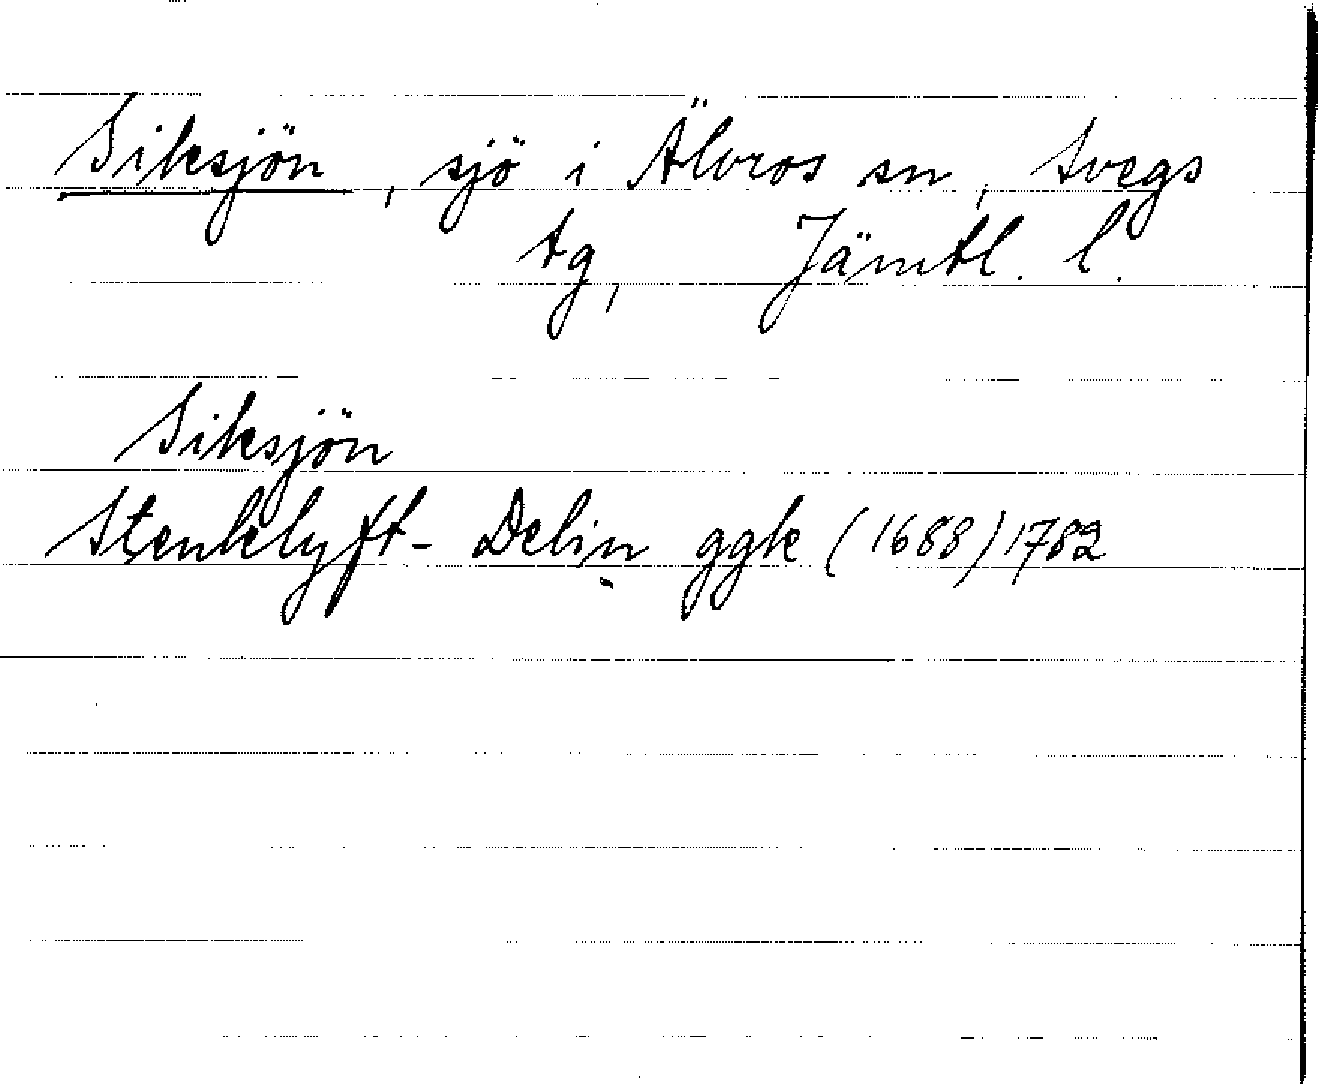 Siksjön, sjö i Älvros sn, Svegs
tg, Jämtl. l.
Siksjön
Stenklyft- Delin ggk (1688) 1782